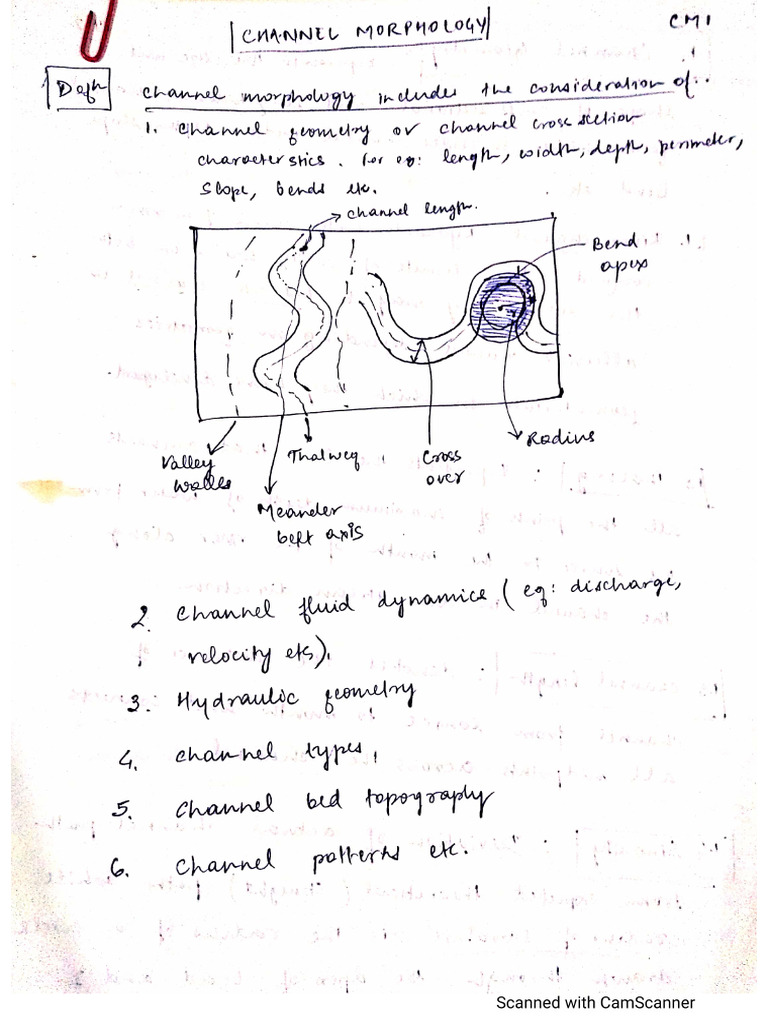 CHANNEL MORPHOLOGY
CM1
Defn
Channel morphology includes the consideration of..
1. Channel geometry or channel cross section
characterstics. For eg: length, width, depth, perimeter,
Slope, bends etc.
channel length.
Bend
apex
Valley
walls
Thalweg
Cross
over
Radius
Meander
belt axis
2. Channel fluid dynamics (eg: discharge,
velocity etc).
3. Hydraulic geometry
4. Channel types,
5. Channel bed topography
6. Channel patterns etc.
Scanned with CamScanner